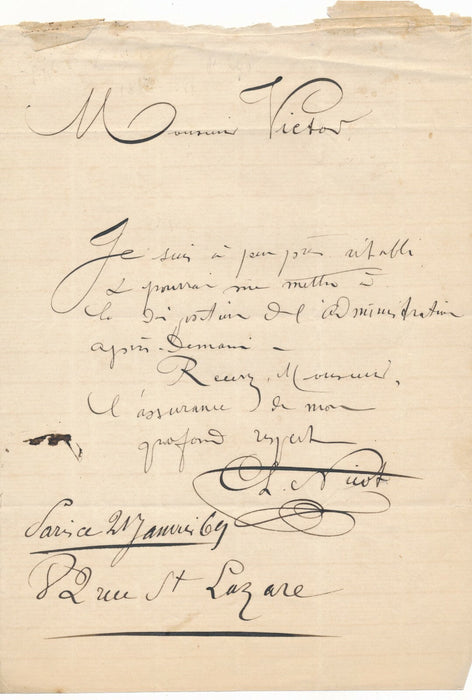 Monsieur Victor
Je suis à peu près rétabli
& pourrai me mettre à
la disposition de l'administration
après-Demain –
Recevez, Monsieur,
l'assurance de mon
profond respect
L. Nicot
Paris ce 21 Janvier 69
82 rue St Lazare